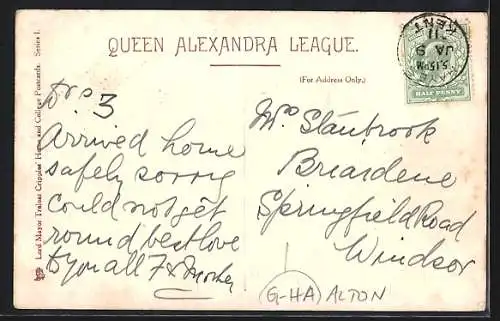 QUEEN ALEXANDRA LEAGUE.
(For Address Only.)
Lord Mayor Treloar Cripples' Home and College Postcards. Series I.
HALF PENNY
KENT
11
JA 9
5.15PM
No 3
Arrived home
safely sorry
could not get
round best love
to you all F & Mother
Mrs Stanbrook
Briardene
Springfield Road
Windsor
(G-HA) ALTON